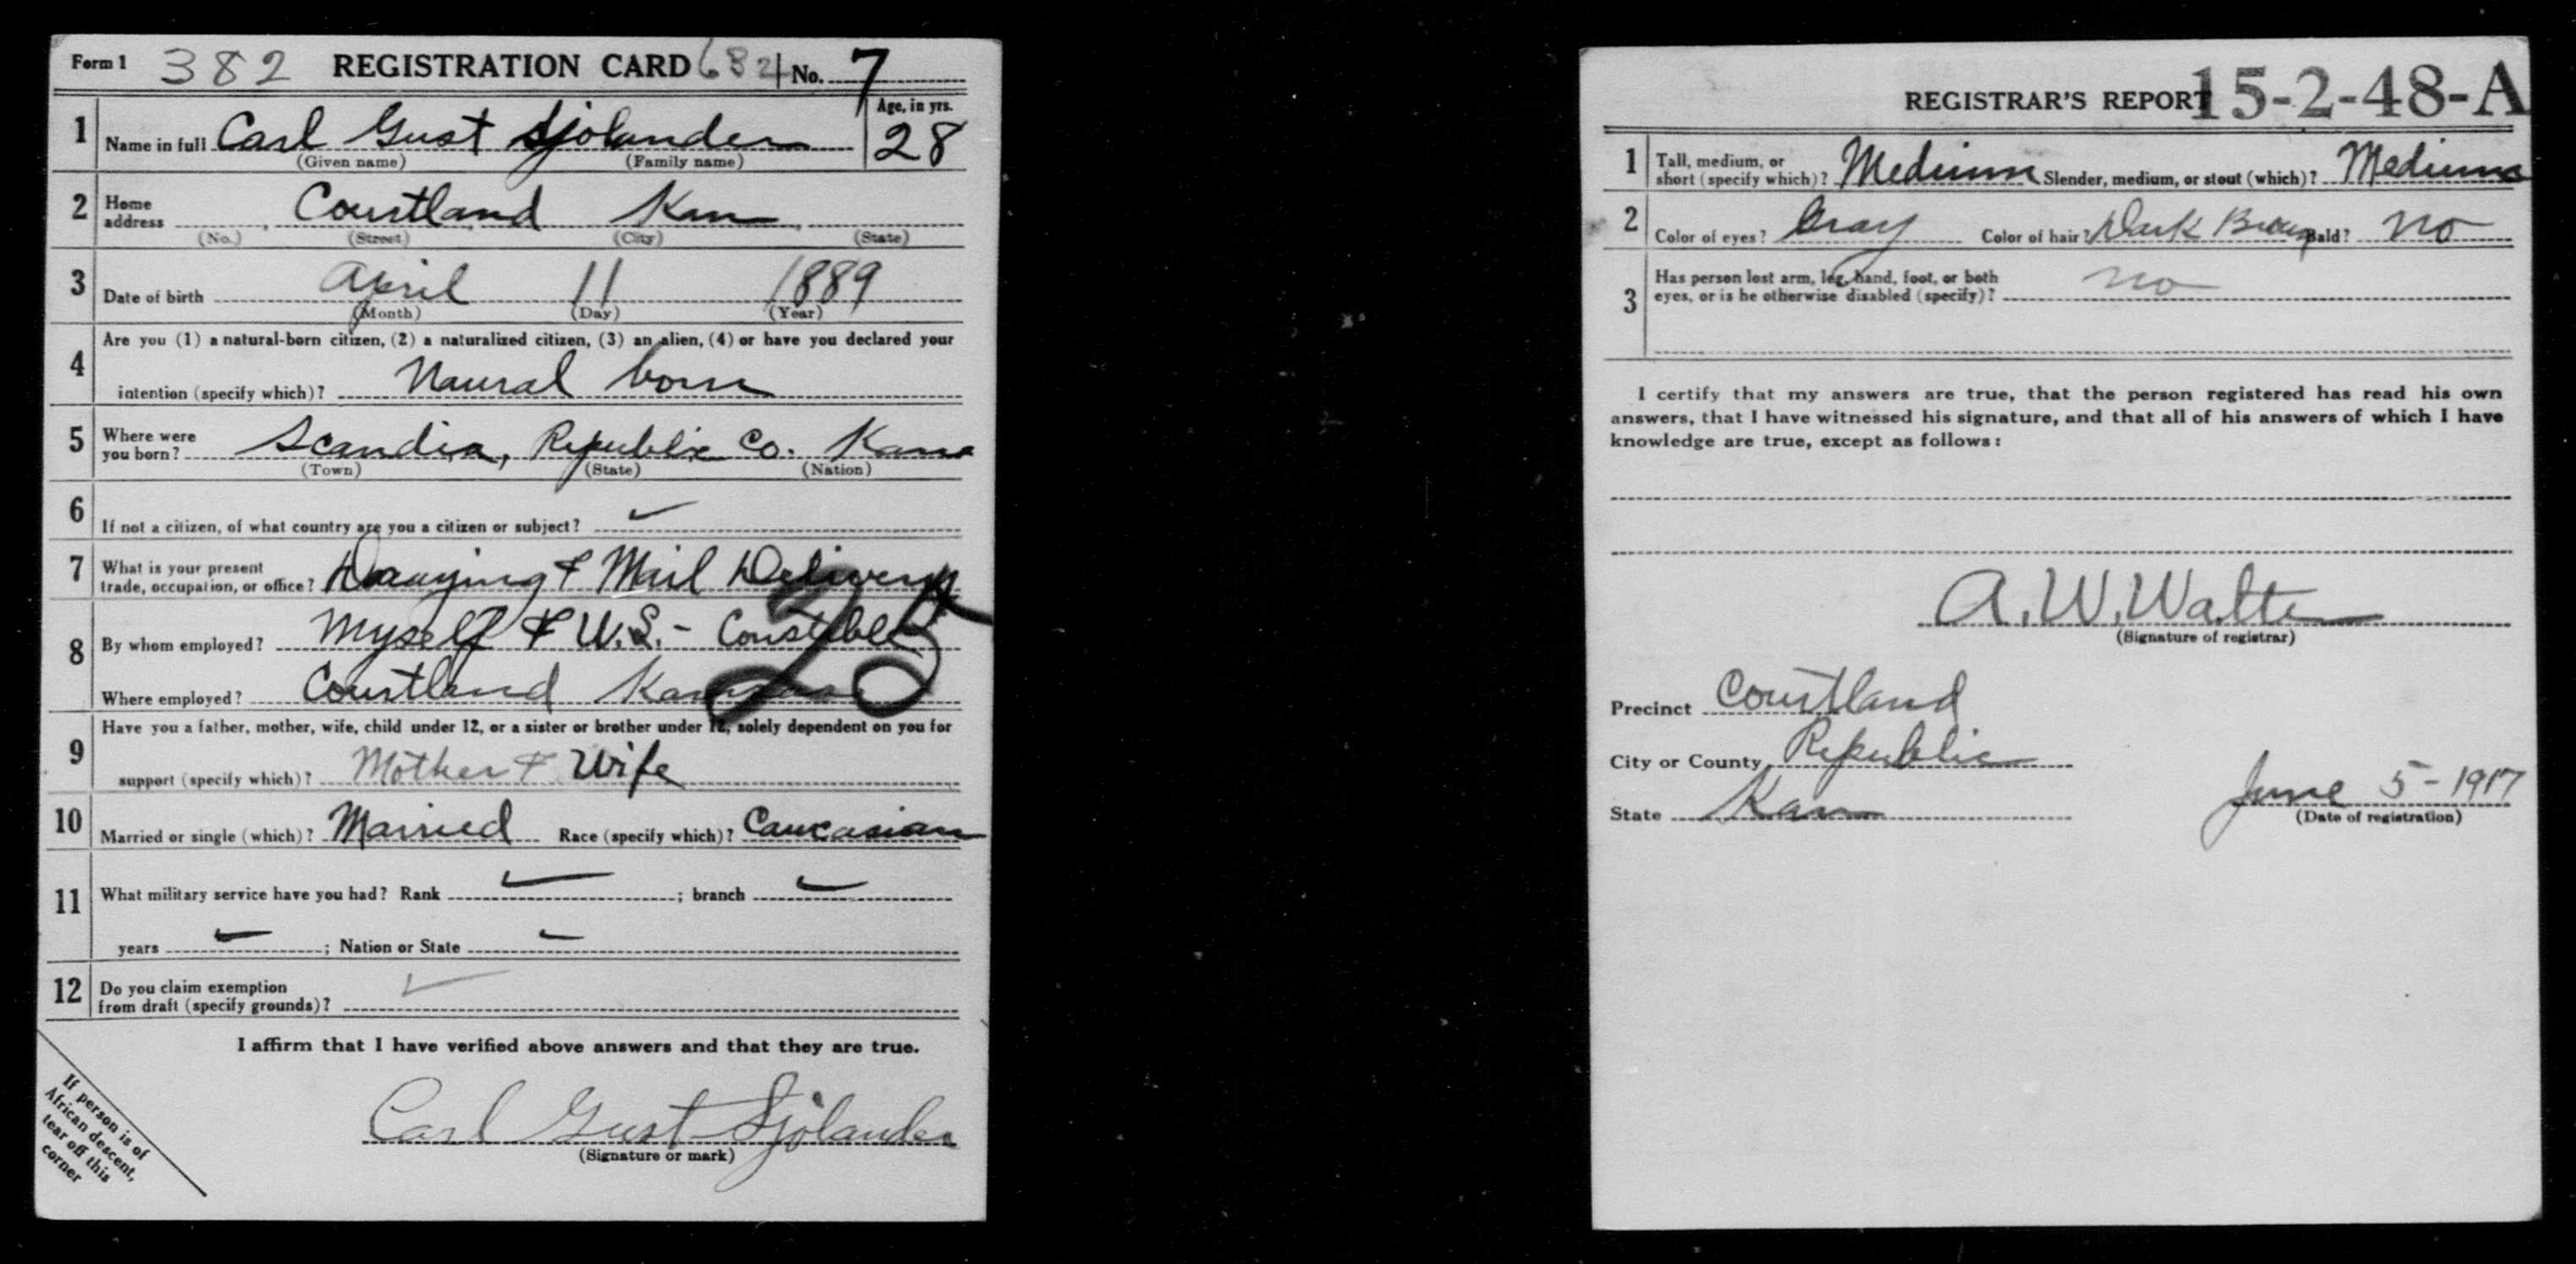 Form 1 382 REGISTRATION CARD 682 No. 7
1 Name in full Carl Gust Sjolander Age, in yrs. 28
(Given name) (Family name)
2 Home address Courtland Kan
(No.) (Street) (City) (State)
3 Date of birth April 11 1889
(Month) (Day) (Year)
4 Are you (1) a natural-born citizen, (2) a naturalized citizen, (3) an alien, (4) or have you declared your
intention (specify which)? Naural born
5 Where were you born? Scandia, Republic Co. Kans
(Town) (State) (Nation)
6 If not a citizen, of what country are you a citizen or subject? ✓
7 What is your present trade, occupation, or office? Draying & Mail Delivery
8 By whom employed? Myself & U.S. - Constable
Where employed? Courtland Kansas
25
9 Have you a father, mother, wife, child under 12, or a sister or brother under 12, solely dependent on you for
support (specify which)? Mother & Wife
10 Married or single (which)? Married Race (specify which)? Caucasian
11 What military service have you had? Rank ✓ ; branch ✓
years ✓ ; Nation or State ✓
12 Do you claim exemption from draft (specify grounds)? ✓
I affirm that I have verified above answers and that they are true.
Carl Gust Sjölander
(Signature or mark)
If person is of
African descent,
tear off this
corner
REGISTRAR'S REPORT 15-2-48-A
1 Tall, medium, or short (specify which)? Medium Slender, medium, or stout (which)? Medium
2 Color of eyes? Gray Color of hair? Dark Brown Bald? No
3 Has person lost arm, leg, hand, foot, or both
eyes, or is he otherwise disabled (specify)? no
I certify that my answers are true, that the person registered has read his own
answers, that I have witnessed his signature, and that all of his answers of which I have
knowledge are true, except as follows:
A. W. Walter
(Signature of registrar)
Precinct Courtland
City or County Republic
State Kan
June 5 - 1917
(Date of registration)